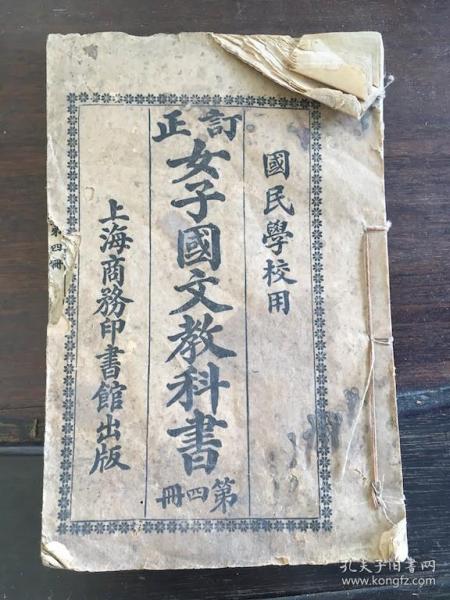 國民學校用
訂正
女子國文教科書
第四冊
上海商務印書館出版
第四冊
孔夫子旧书网
www.kongfz.com